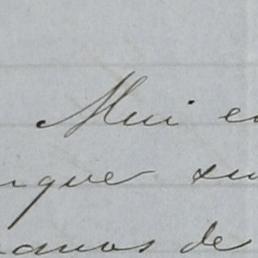 Mui e
nque su
danos de